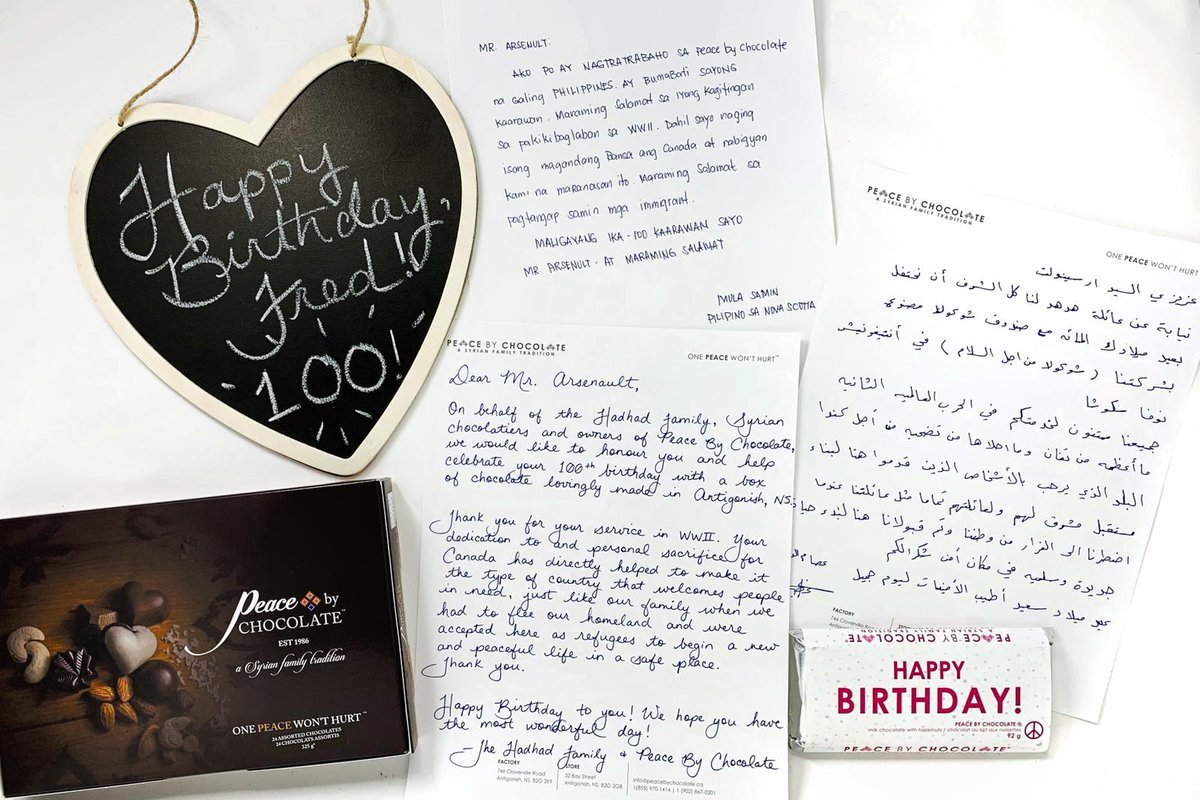 Happy
Birthday,
Fred!
100!
MR. ARSENULT:
AKO PO AY NAGTRATRABAHO SA Peace by Chocolate
na Galing PHILIPPINES. AY BumaBati SAYONG
Kaarawan. Maraming Salamat sa iyong Kagitingan
sa pakikibaglaban sa WWII. Dahil sayo naging
isang magandang Bansa ang Canada at nabigyan
kami na maranasan ito. Maraming Salamat sa
pagtangap samin mga immigrant.
MALIGAYANG IKA-100 KAARAWAN SAYO
MR ARSENULT. AT MARAMING SALAMAT
MULA SAMIN
PILIPINO SA NOVA SCOTIA
PEACE BY CHOCOLATE
A SYRIAN FAMILY TRADITION
ONE PEACE WON'T HURT™
Dear Mr. Arsenault,
On behalf of the Hadhad family, Syrian
chocolatiers and owners of Peace By Chocolate,
we would like to honour you and help
celebrate your 100th birthday with a box
of chocolate lovingly made in Antigonish, NS.
Thank you for your service in WWII. Your
dedication to and personal sacrifice for
Canada has directly helped to make it
the type of country that welcomes people
in need, just like our family when we
had to flee our homeland and were
accepted here as refugees to begin a new
and peaceful life in a safe place.
Thank you.
Happy Birthday to you! We hope you have
the most wonderful day!
- The Hadhad family & Peace By Chocolate
FACTORY
746 Cloverville Road
Antigonish, NS. B2G 2K9
STORE
32 Bay Street
Antigonish, NS. B2G 2G8
info@peacebychocolate.ca
1(855) 970-1414 | 1 (902) 867-0201
PEACE BY CHOCOLATE
A SYRIAN FAMILY TRADITION
ONE PEACE WON'T HURT
عزيزي السيد ارسينولت
نيابة عن عائلة هدهد لنا كل الشرف أن نحتفل
بعيد ميلادك المائه مع صندوق شوكولا مصنوع
بشركتنا ( شوكولا من اجل السلام ) في أنتيغونيش
نوفا سكوشا
جميعنا ممتنون لخدمتكم في الحرب العالميه الثانيه
ما أعظمه من تفان وما احلاها من تضحيه من أجل كندا
البلد الذي يرحب بالأشخاص الذين قدموا هنا لبناء
مستقبل مشرق لهم ولعائلتهم تماما مثل عائلتنا عندما
اضطرنا الى الفرار من وطننا وتم قبولنا هنا لبدء حياة
جديدة وسلميه في مكان أمن شكرا لكم
عيد ميلاد سعيد أطيب الأمنيات ليوم جميل
عصام
FACTORY
746 Cloverville Road
Peace by
CHOCOLATE™
EST 1986
a Syrian family tradition
ONE PEACE WON'T HURT™
24 ASSORTED CHOCOLATES
24 CHOCOLATS ASSORTIS
325 g
PEACE BY CHOCOLATE
A SYRIAN FAMILY TRADITION
HAPPY
BIRTHDAY!
PEACE BY CHOCOLATE ®
milk chocolate with hazelnuts / chocolat au lait aux noisettes
92 g
PEACE BY CHOCOLATE